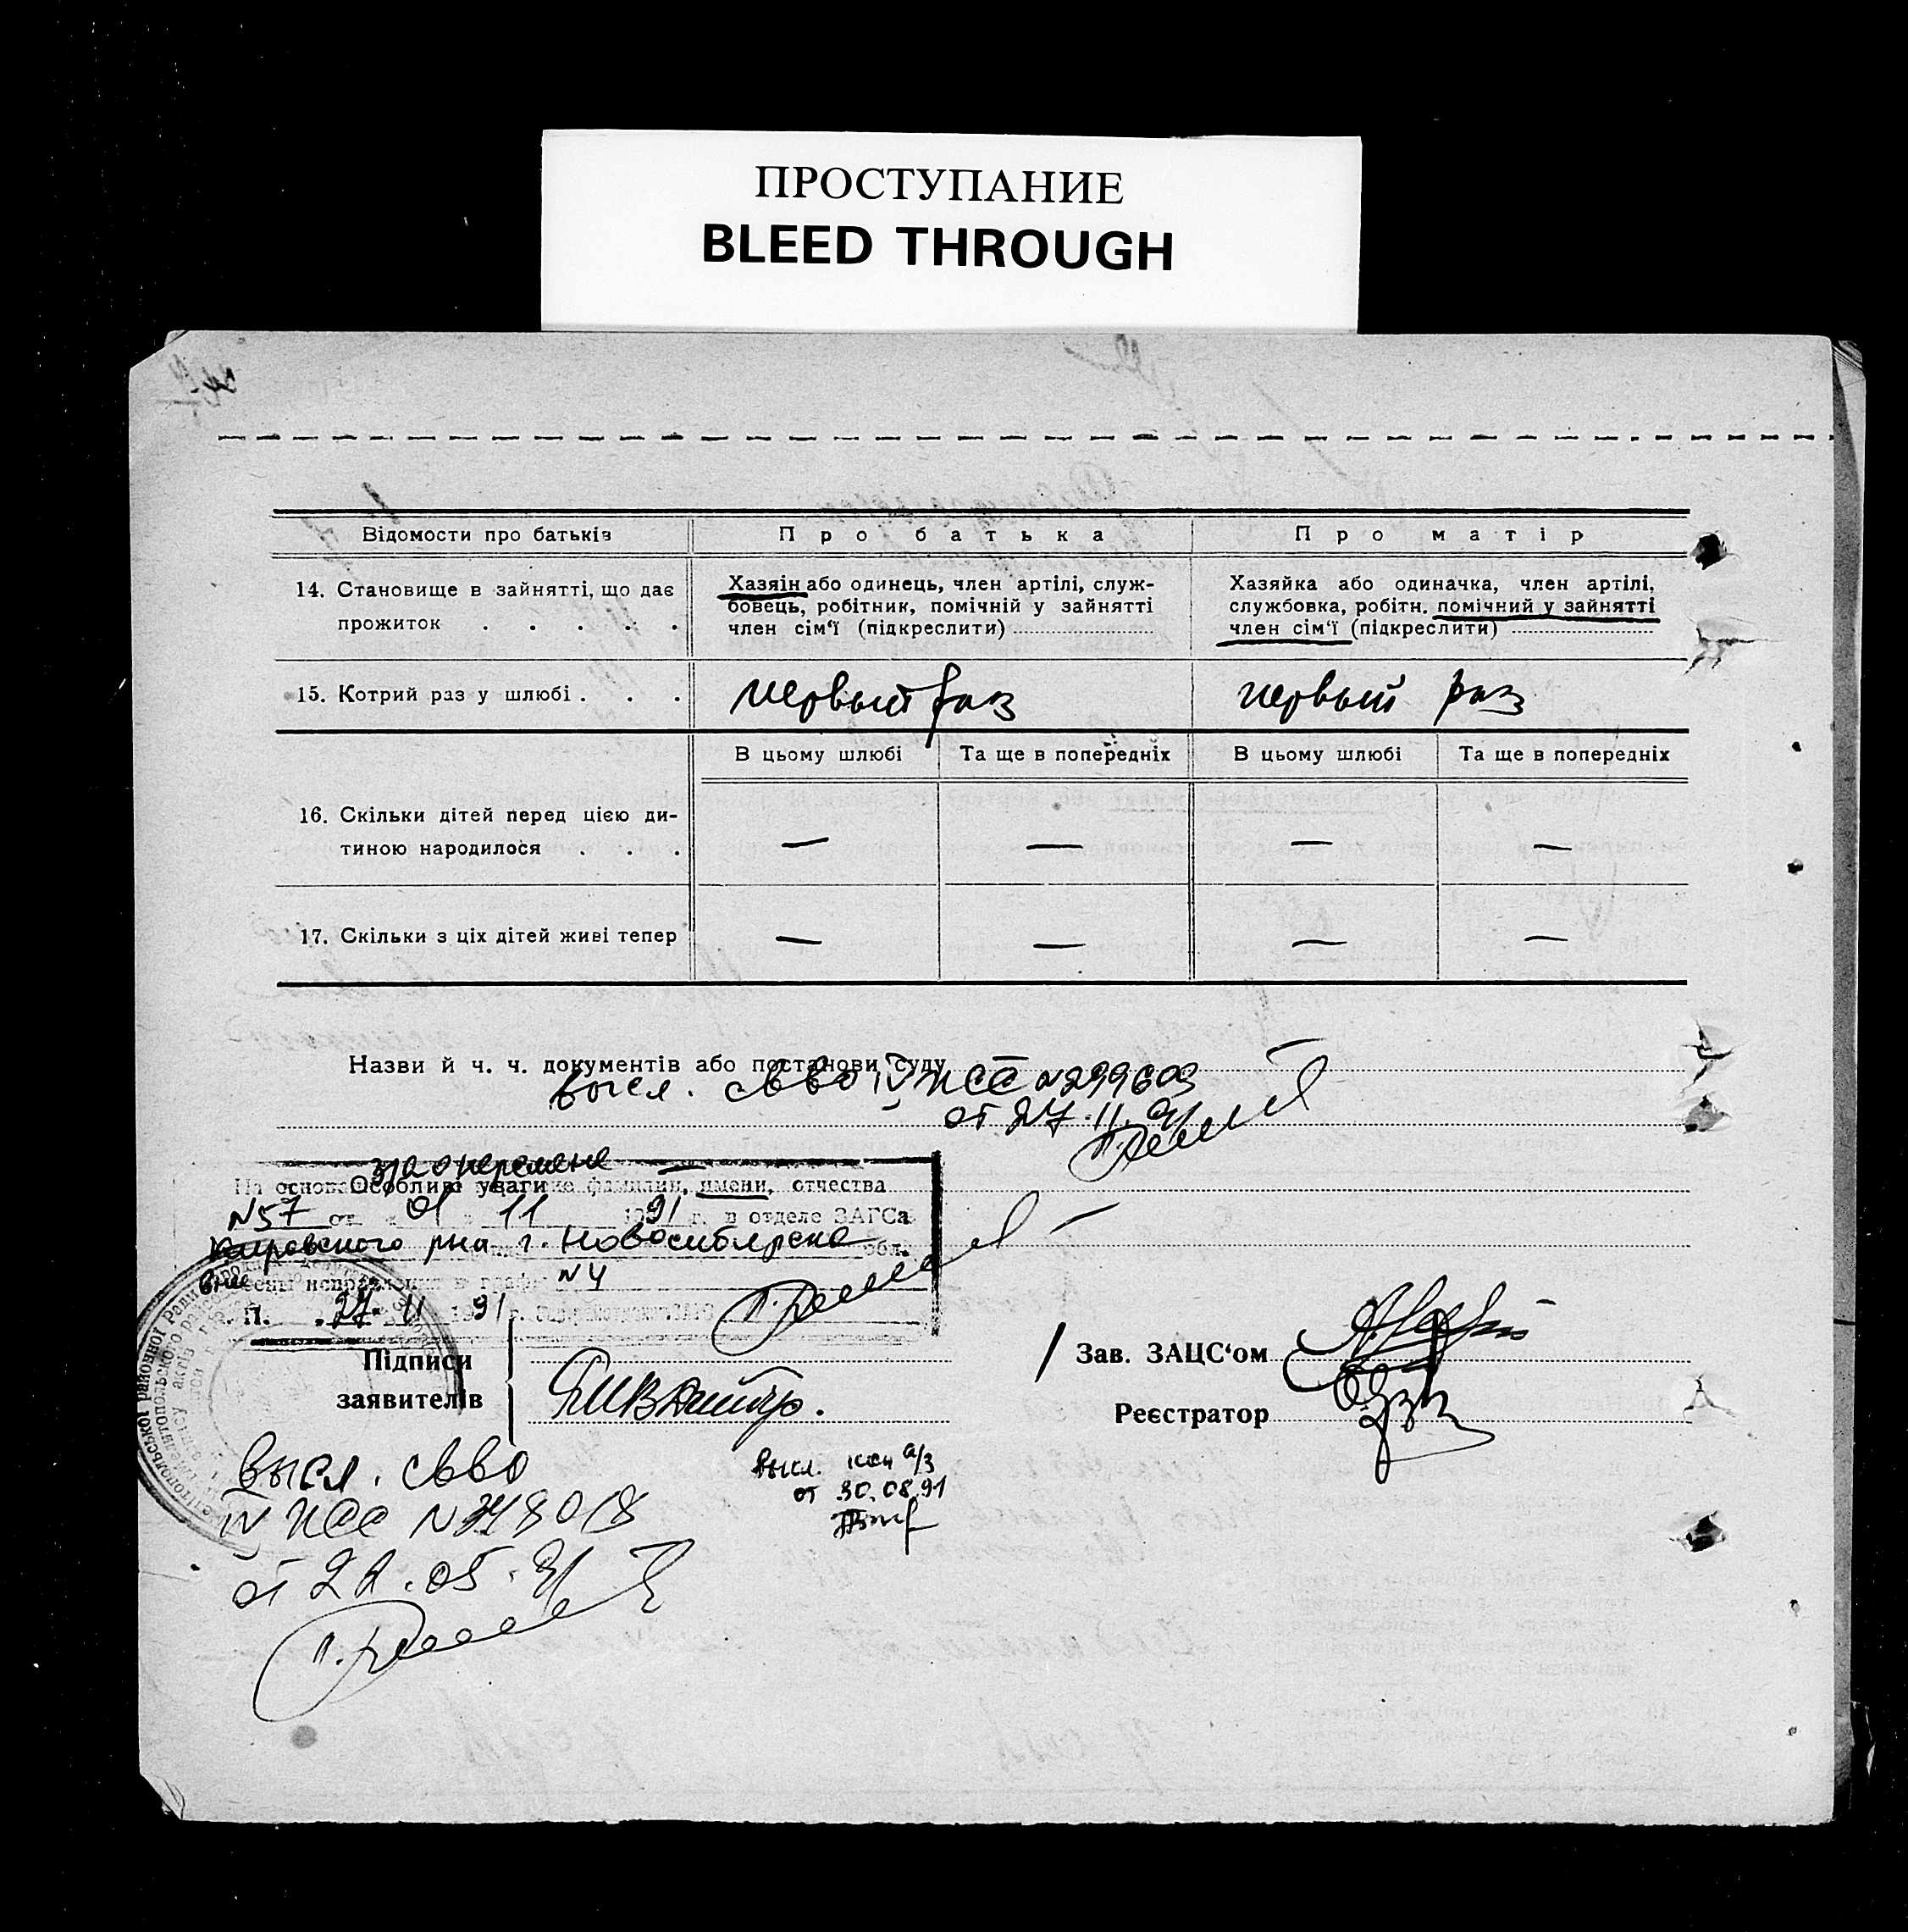 ПРОСТУПАНИЕ
BLEED THROUGH
Відомости про батьків
Про батька
Про матір
14. Становище в зайнятті, що дає
прожиток . . . . .
Хазяін або одинець, член артілі, служ-
бовець, робітник, помічній у зайнятті
член сім‘ї (підкреслити)
Хазяйка або одиначка, член артілі,
службовка, робітн. помічний у зайнятті
член сім‘ї (підкреслити)
15. Котрий раз у шлюбі . . .
первый раз
первый раз
В цьому шлюбі
Та ще в попередніх
В цьому шлюбі
Та ще в попередніх
16. Скільки дітей перед цією ди-
тиною народилося . . .
— — — —
17. Скільки з ціх дітей живі тепер
— — — —
Назви й ч. ч. документів або постанови суду
высл. св-во IV ЖС № 299603
от 27.11.91
з/а о перемене
Особливі уваги
На основ фамилии, имени, отчества
N57 от 01 11 1991 г. в отделе ЗАГСа
Кировского р-на г. Новосибирска обл.
внесены исправления в графы N4
П. 27. 11 1991 г.
Підписи
заявителів
Зав. ЗАЦС‘ом
Реєстратор
высл. св-во
от 21.05.91
высл. а/з
от 30.08.91